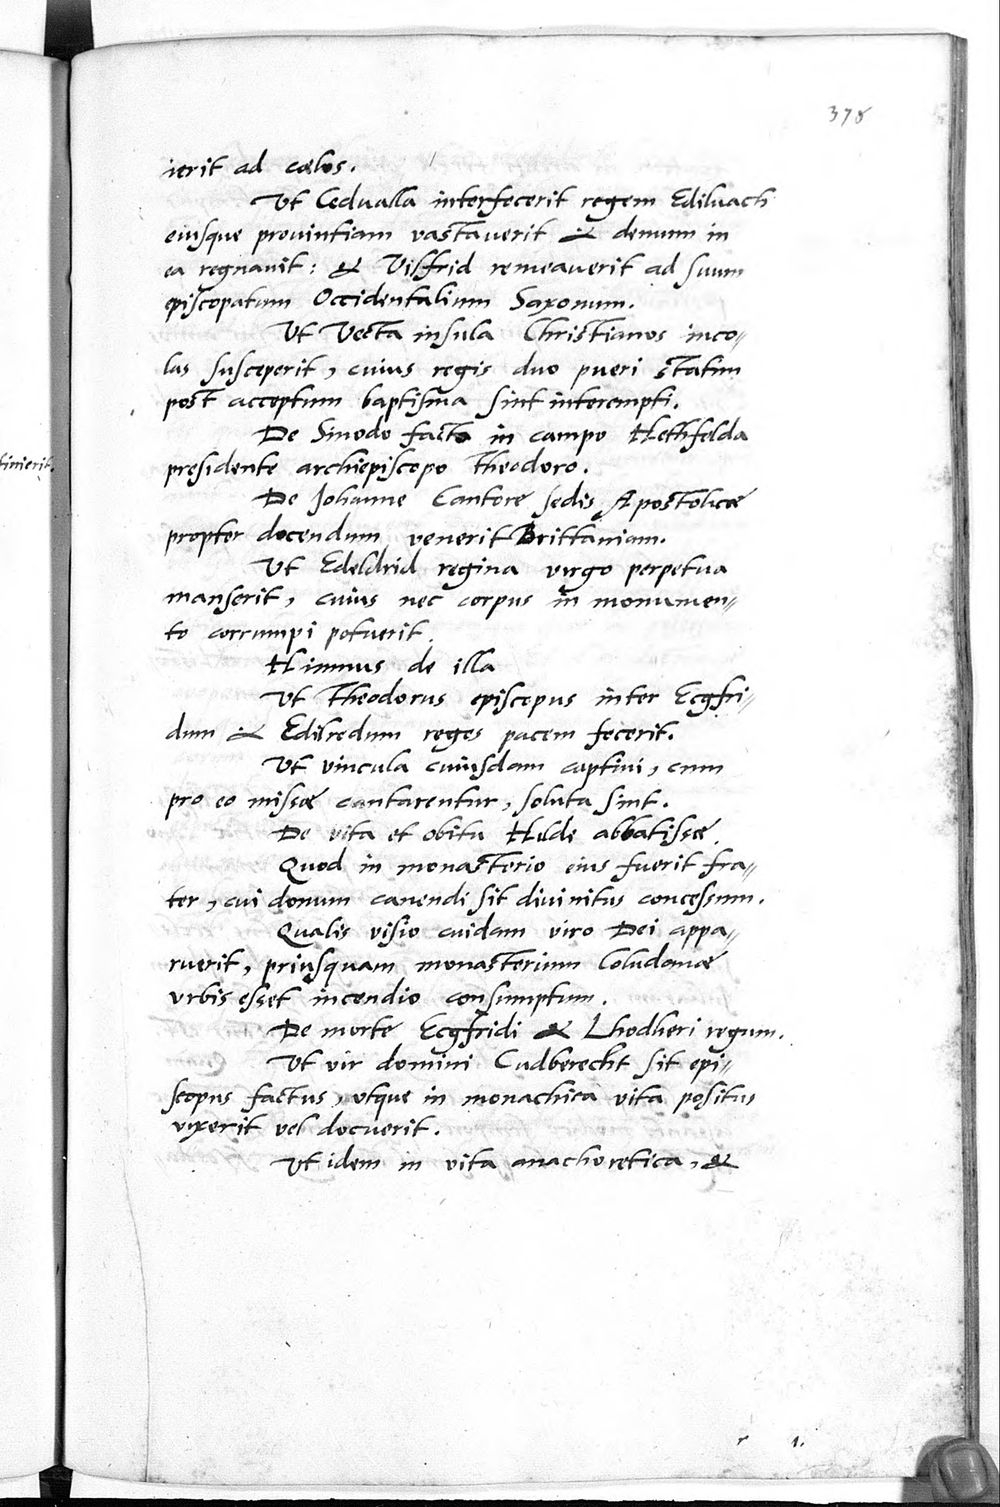 378
ierit ad cœlos.
Ut Cedualla interfecerit regem Ediluach
eiusque prouintiam vastaverit & demum in
ea regnauit: & Vilfrid remeaverit ad suum
episcopatum Occidentalium Saxonum.
Ut Vecta insula Christianos inco„
las susceperit, cuius regis duo pueri statim
post acceptum baptisma sint interempti.
De Sinodo facto in campo Hethfelda
tinierit.
presidente archiepiscopo Theodoro.
De Johanne Cantore sedis Apostolicæ
propter docendum venerit Brittaniam.
Ut Edeldrid regina virgo perpetua
manserit, cuius nec corpus in monumen„
to corrumpi potuerit.
Himnus de illa
Ut Theodorus episcopus inter Ecgfri„
dum & Edilredum reges pacem fecerit.
Ut vincula cuiusdam captiui, cum
pro eo missæ cantarentur, soluta sint.
De vita et obitu Hilde abbatissæ.
Quod in monasterio eius fuerit fra„
ter, cui donum canendi sit divinitus concessum.
Qualis visio cuidam viro Dei appa„
ruerit, priusquam monasterium Coludanæ
vrbis esset incendio consumptum.
De morte Ecgfridi & Lhodheri regum.
Ut vir domini Cudberecht sit epi„
scopus factus, vtque in monachica vita positus
vixerit vel docuerit.
Ut idem in vita anachoretica, &
r 1.